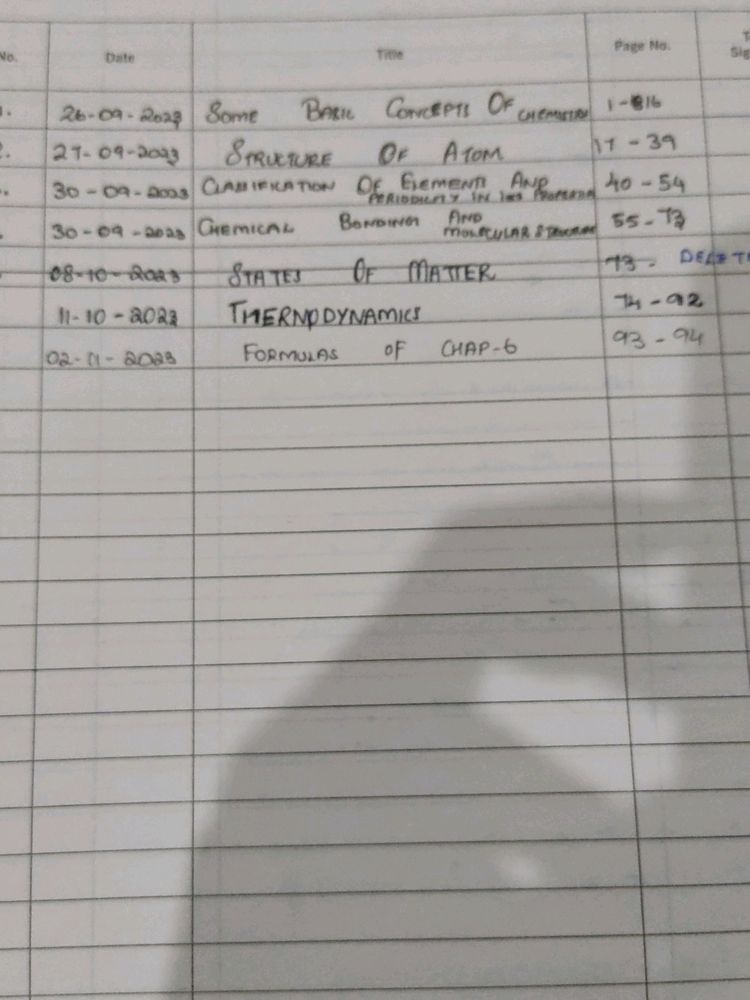 No. Date Title Page No. T
Sig
1. 26-09-2023 Some BASIC CONCEPTS OF CHEMISTRY 1-16
2. 27-09-2023 STRUCTURE OF ATOM 17-39
30-09-2023 CLASSIFICATION OF ELEMENTS AND 40-54
PERIODICITY IN
30-09-2023 CHEMICAL BONDING AND 55-73
MOLECULAR STRUCTURE
08-10-2023 STATES OF MATTER 73- DELETE
11-10-2023 THERMODYNAMICS 74-92
02-11-2023 FORMULAS OF CHAP-6 93-94